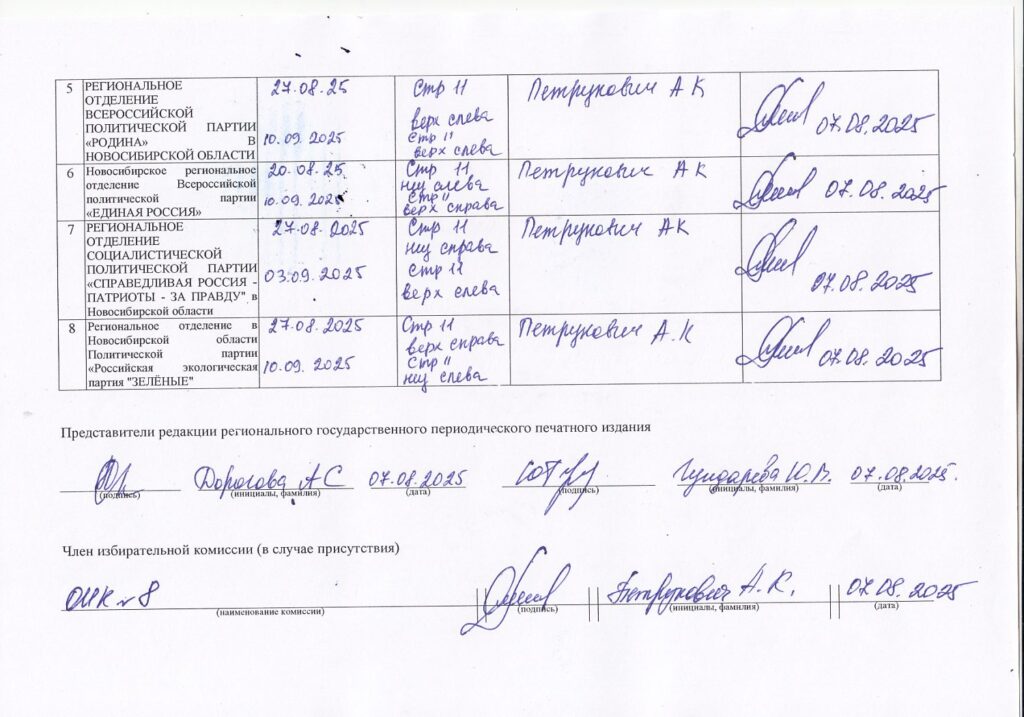 5
РЕГИОНАЛЬНОЕ
ОТДЕЛЕНИЕ
ВСЕРОССИЙСКОЙ
ПОЛИТИЧЕСКОЙ ПАРТИИ
«РОДИНА» В
НОВОСИБИРСКОЙ ОБЛАСТИ
27.08.25
10.09.2025
Стр 11
верх слева
Стр 11
верх слева
Петрукович А К
07.08.2025
6
Новосибирское региональное
отделение Всероссийской
политической партии
«ЕДИНАЯ РОССИЯ»
20.08.25
10.09.2025
Стр 11
низ слева
Стр 11
верх справа
Петрукович А К
07.08.2025
7
РЕГИОНАЛЬНОЕ
ОТДЕЛЕНИЕ
СОЦИАЛИСТИЧЕСКОЙ
ПОЛИТИЧЕСКОЙ ПАРТИИ
«СПРАВЕДЛИВАЯ РОССИЯ -
ПАТРИОТЫ - ЗА ПРАВДУ" в
Новосибирской области
27.08.2025
03.09.2025
Стр 11
низ справа
Стр 11
верх слева
Петрукович АК
07.08.2025
8
Региональное отделение в
Новосибирской области
Политической партии
«Российская экологическая
партия "ЗЕЛЁНЫЕ"
27.08.2025
10.09.2025
Стр 11
верх справа
Стр 11
низ слева
Петрукович А.К
07.08.2025
Представители редакции регионального государственного периодического печатного издания
Дорогова АС 07.08.2025 Гундарева Ю.В. 07.08.2025.
(подпись) (инициалы, фамилия) (дата) (подпись) (инициалы, фамилия) (дата)
Член избирательной комиссии (в случае присутствия)
ОИК №8 Петрукович А.К. 07.08.2025
(наименование комиссии) (подпись) (инициалы, фамилия) (дата)